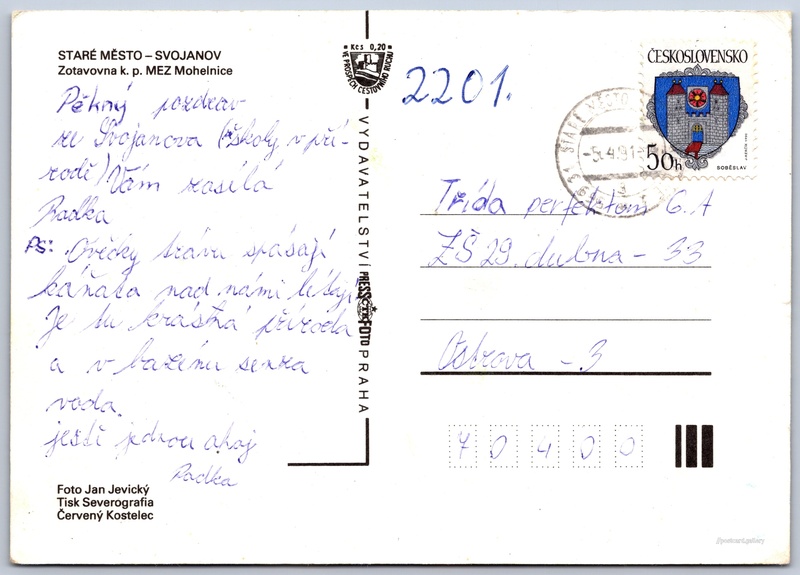 STARÉ MĚSTO – SVOJANOV
Zotavovna k. p. MEZ Mohelnice
Pěkný pozdrav
ze Svojanova (školy v pří-
rodě) Vám zasílá
Radka
PS: Ovečky trávu spásají
káňata nad námi létají
Je tu krásná příroda
a v bazénu senza
voda.
ještě jednou ahoj
Radka
Foto Jan Jevický
Tisk Severografia
Červený Kostelec
Kčs 0,20
VE PROSPĚCH CESTOVNÍHO RUCHU
VYDAVATELSTVÍ PRESSFOTO PRAHA
2201.
ČESKOSLOVENSKO
50h
SOBĚSLAV
STARÉ MĚSTO
-5.4.91
Třída perfektom 6.A
ZŠ 29. dubna - 33
Ostrova - 3
70400
postcard.gallery